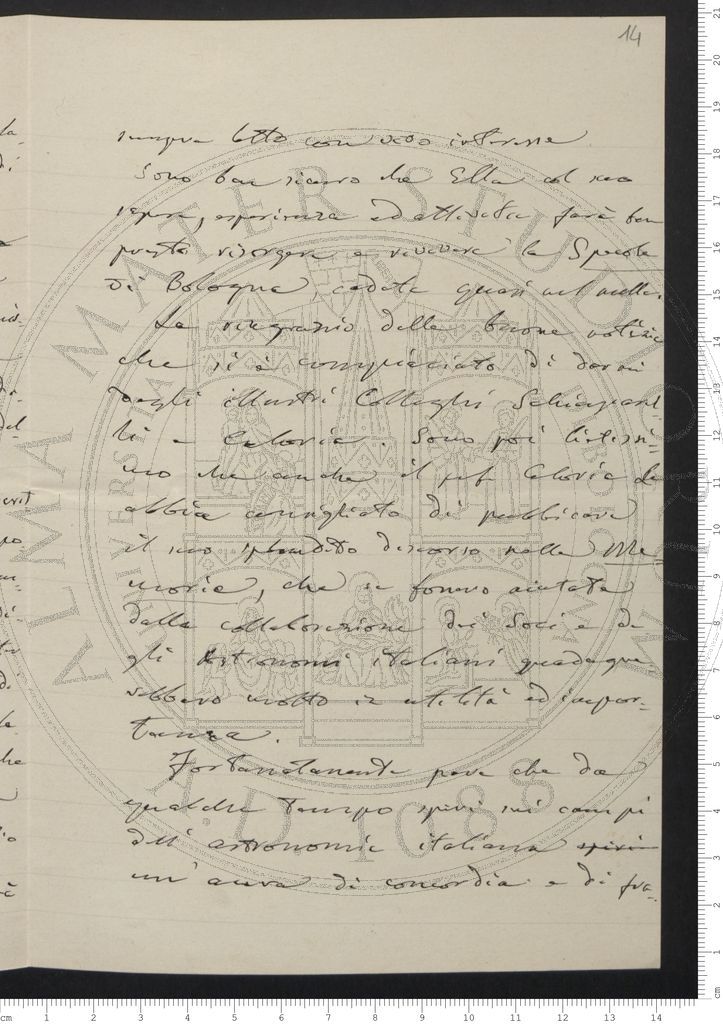 14
sempre letto con vero interesse
Sono ben sicuro che Ella col suo
sapere, esperienza ed attività farà ben
presto risorgere e rivivere la Specola
di Bologna, caduta quasi nel nulla.
La ringrazio delle buone notizie
che si è compiaciuto di darmi
degli illustri Colleghi Schiaparel-
li e Celoria. Sono poi lietissi-
mo che anche il prof Celoria La
abbia consigliato di pubblicare
il suo splendido discorso nelle Me
morie, che se fossero aiutate
dalla collaborazione dei Soci e de
gli Astronomi italiani guadagne-
rebbero molto in utilità ed impor-
tanza.
Fortunatamente pare che da
qualche tempo spiri nei campi
dell'astronomia italiana spiri
un'aura di concordia e di fra-
ALMA MATER STUDIORUM
A.D. 1088